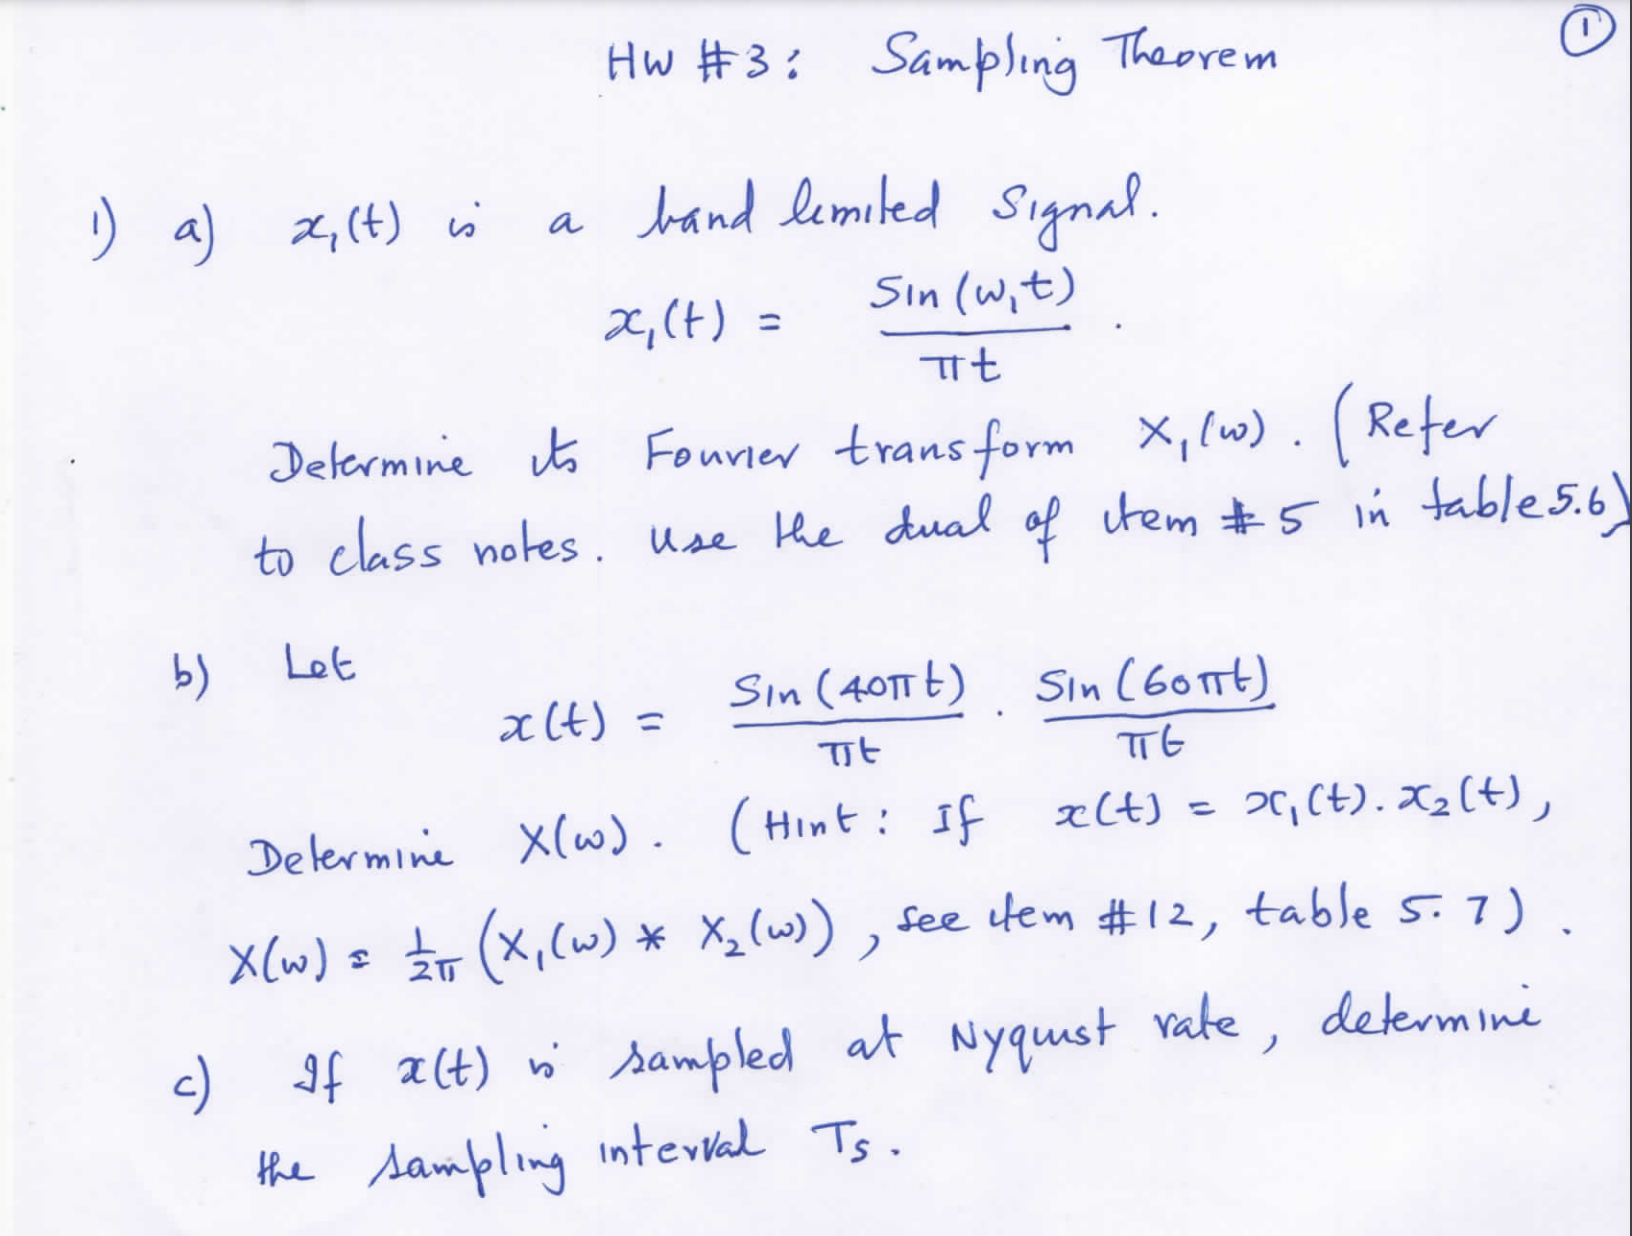 HW #3: Sampling Theorem
①
1) a) x₁(t) is a band limited signal.
x₁(t) = Sin(ω₁t) / πt .
Determine its Fourier transform X₁(ω). (Refer
to class notes. Use the dual of item #5 in table 5.6)
b) Let
x(t) = Sin(40πt) / πt . Sin(60πt) / πt
Determine X(ω). (Hint: If x(t) = x₁(t). x₂(t),
X(ω) = 1/2π (X₁(ω) * X₂(ω)), see item #12, table 5.7).
c) If x(t) is sampled at Nyquist rate, determine
the sampling interval Ts.